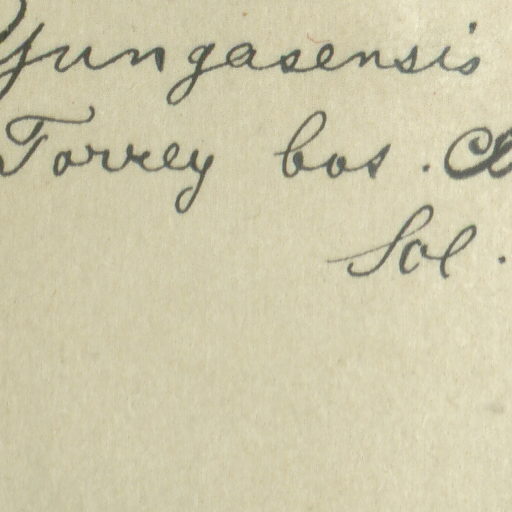 yungasensis
Torrey bot. C
Sol.